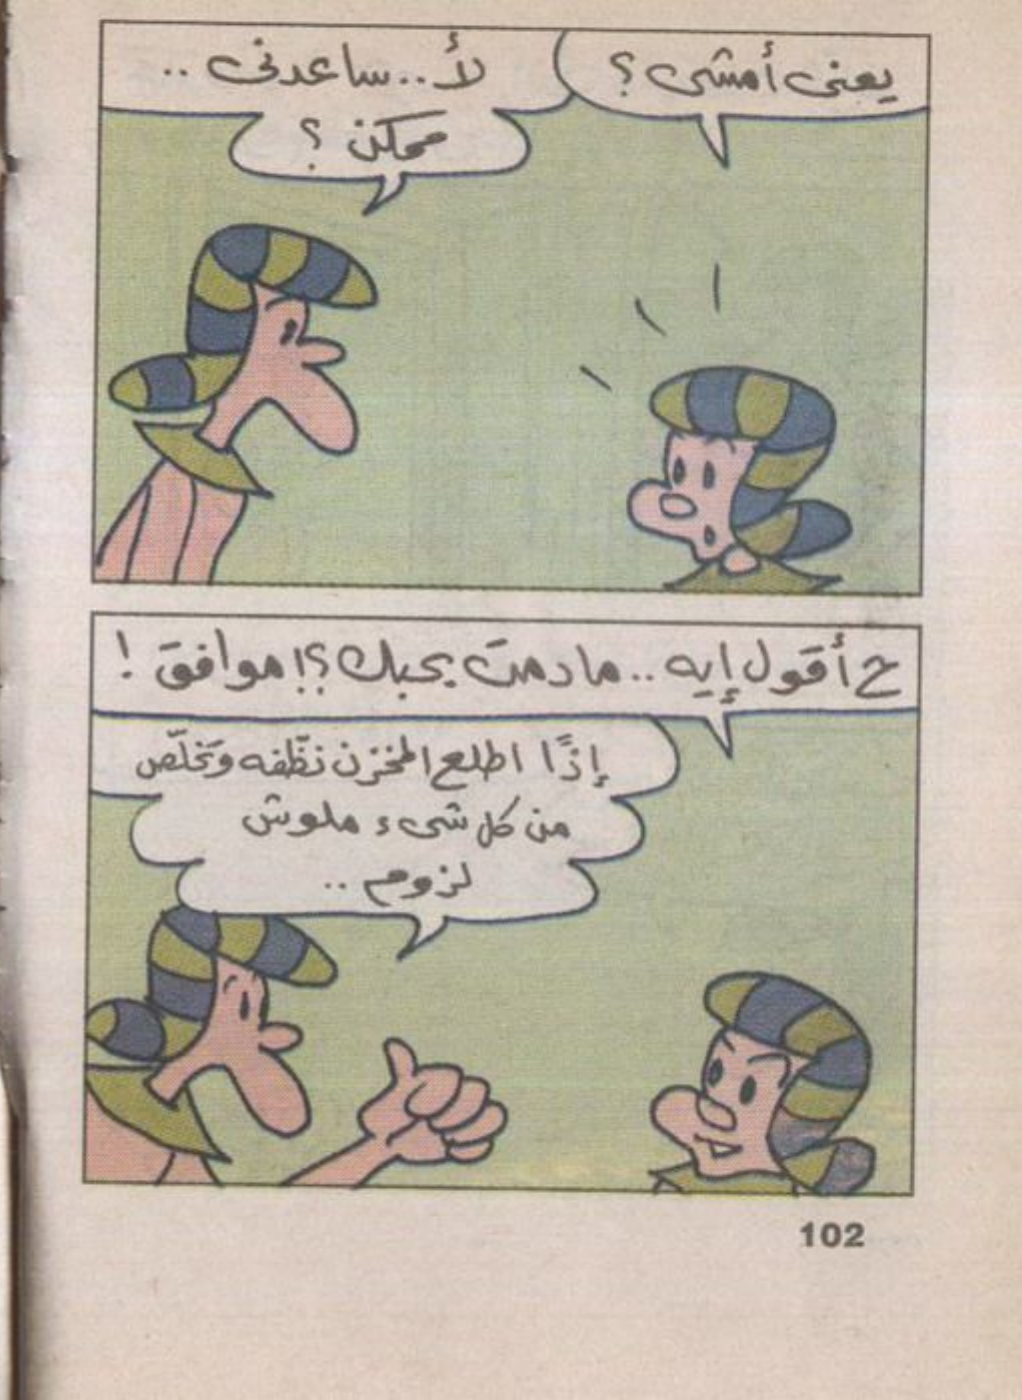 يعنى أمشى ؟
لأ..ساعدنى ..
ممكن ؟
ح أقول إيه ..مادمت بحبك ؟! موافق !
إذًا اطلع المخزن نظّفه وتخلّص
من كل شىء ملوش
لزوم ..
102